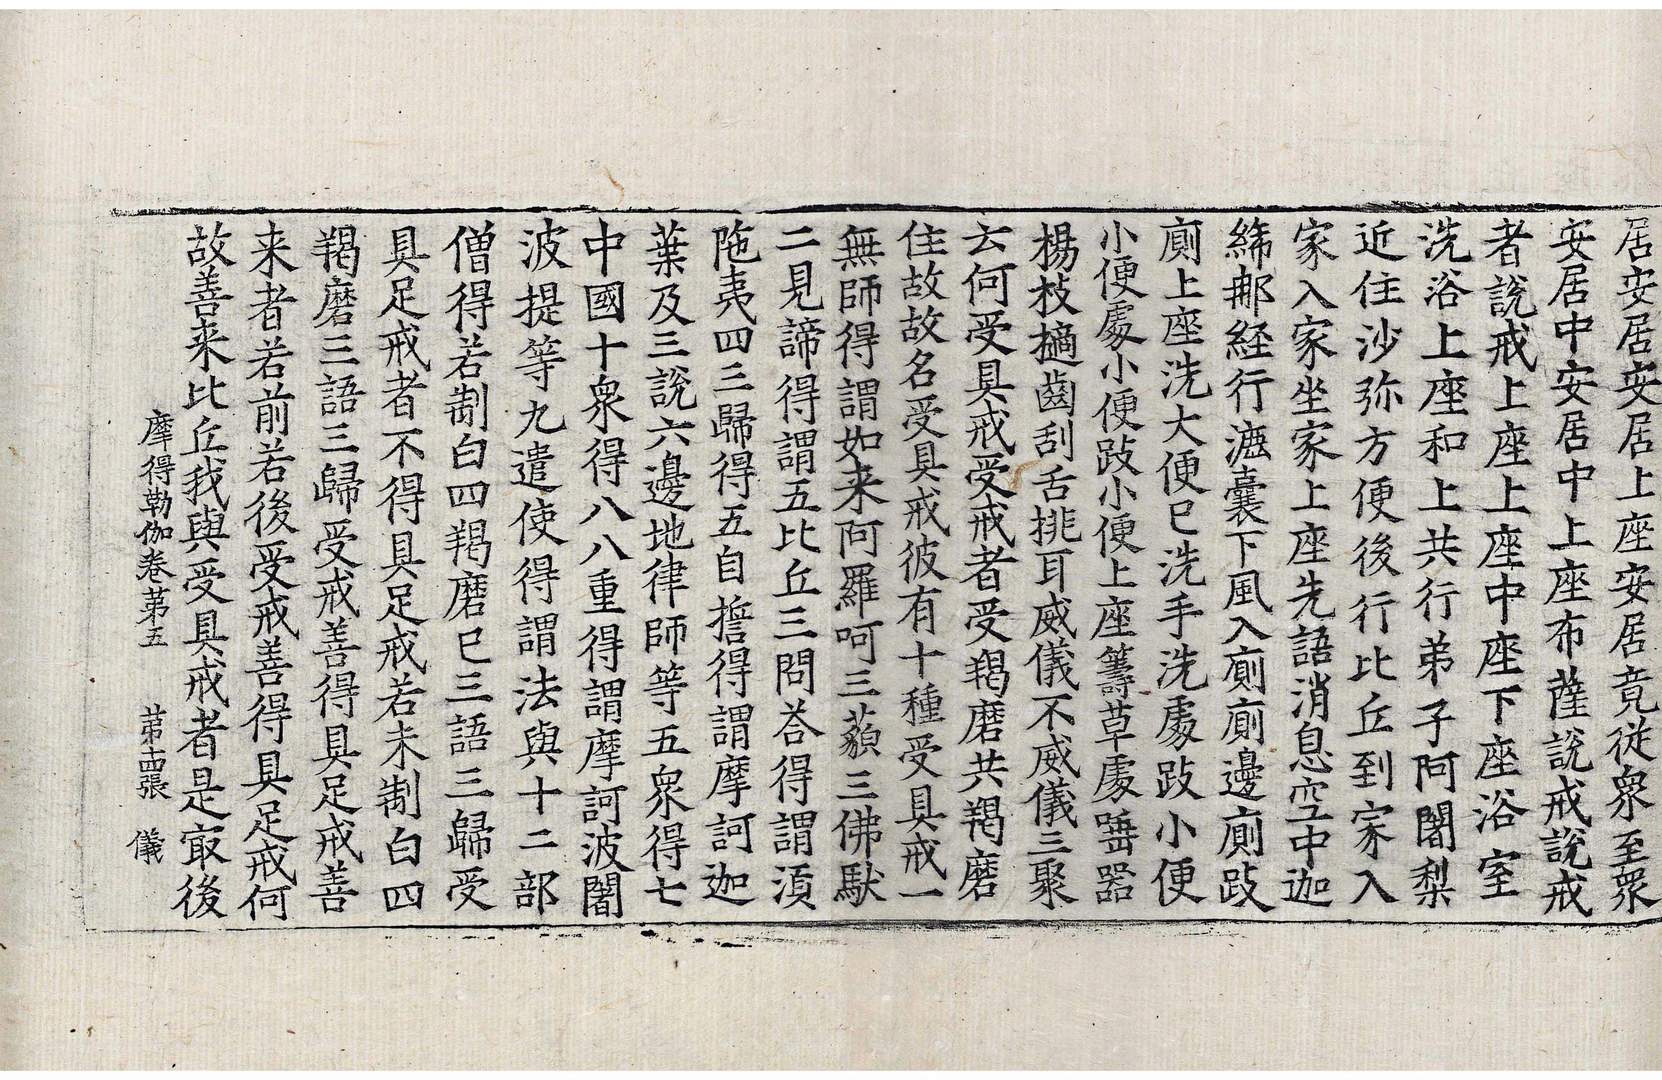 居安居安居上座安居竟從衆至衆
安居中安居中上座布薩說戒說戒
者說戒上座上座中座下座浴室
洗浴上座和上共行弟子阿闍梨
近住沙弥方便後行比丘到家入
家入家坐家上座先語消息空中迦
絺那経行漉囊下風入廁廁邊廁跂
廁上座洗大便已洗手洗處跂小便
小便處小便跂小便上座籌草處唾器
楊枝擿齒刮舌挑耳威儀不威儀三聚
云何受具戒受戒者受羯磨共羯磨
住故故名受具戒彼有十種受具戒一
無師得謂如来阿羅呵三藐三佛馱
二見諦得謂五比丘三問荅得謂湏
陁夷四三歸得五自誓得謂摩訶迦
葉及三說六邊地律師等五衆得七
中國十衆得八八重得謂摩訶波闍
波提等九遣使得謂法與十二部
僧得若制白四羯磨已三語三歸受
具足戒者不得具足戒若未制白四
羯磨三語三歸受戒善得具足戒善
来者若前若後受戒善得具足戒何
故善来比丘我與受具戒者是㝡後
摩得勒伽卷第五 第十四張 儀